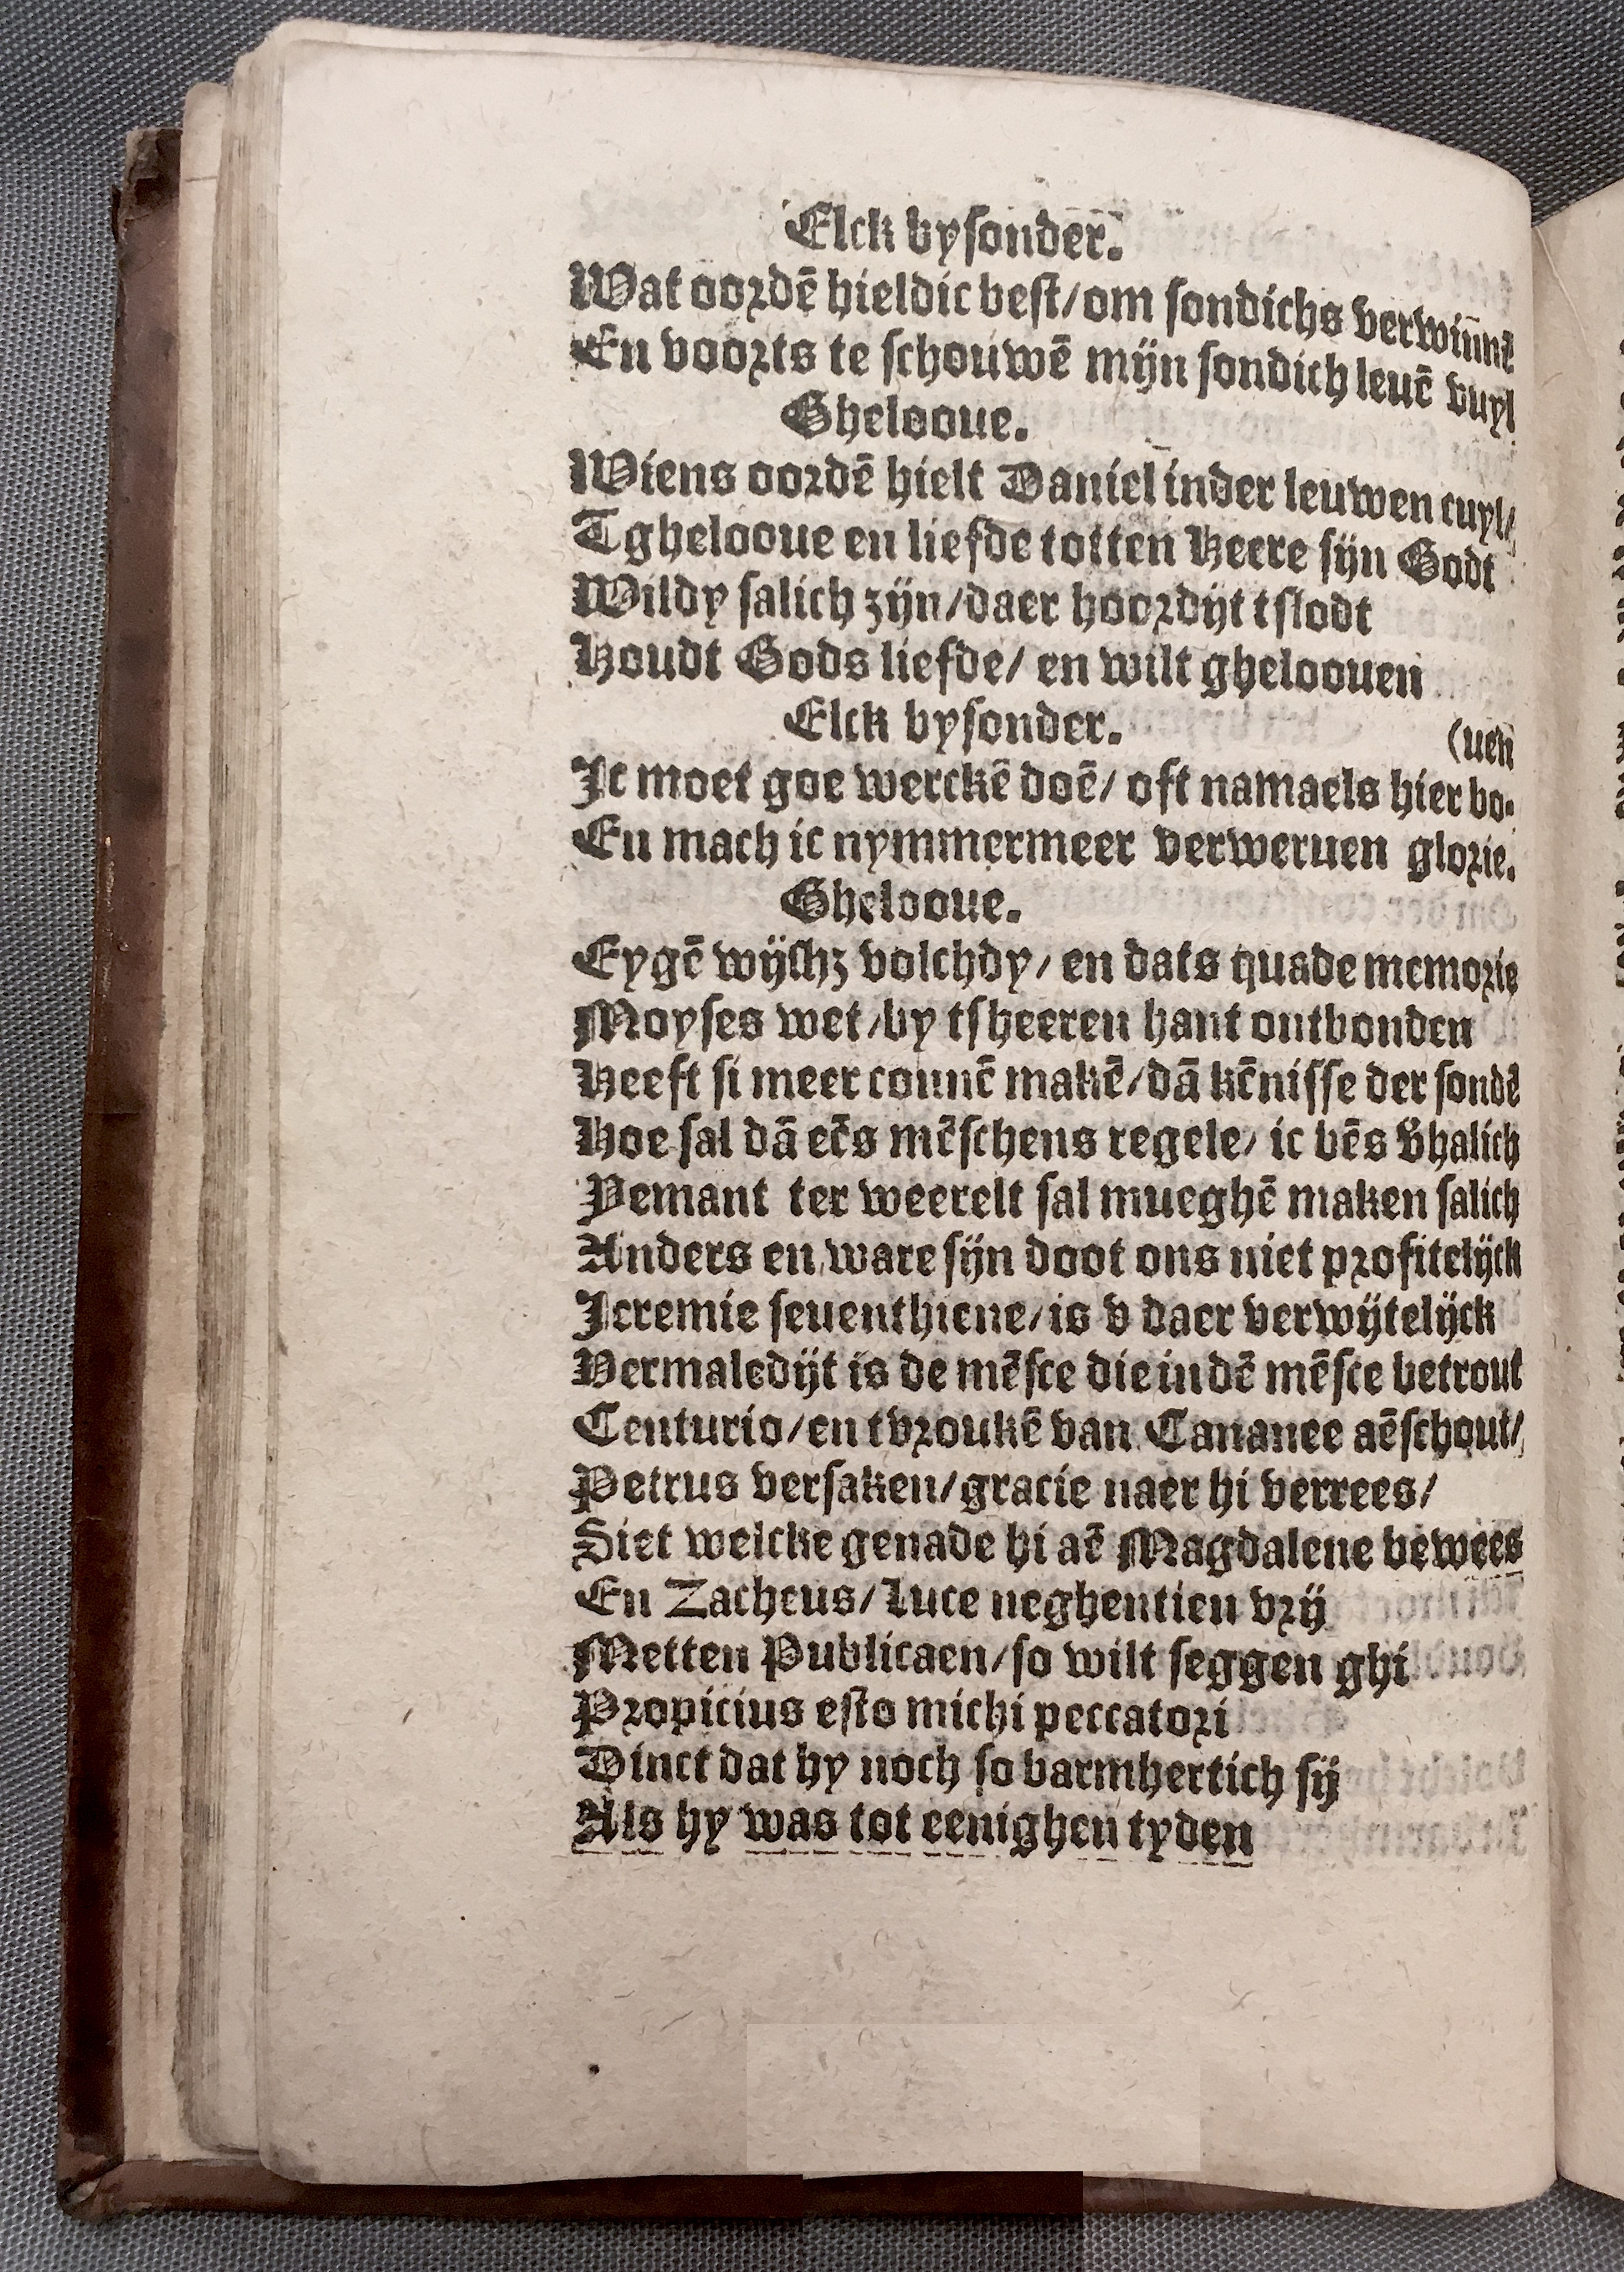 Elck bysonder.
Wat oordē hieldic best/om sondichs verwiñnē
En voorts te schouwē mijn sondich leuē vuyl
Ghelooue.
Wiens oordē hielt Daniel inder leuwen cuyl/
Tghelooue en liefde totten Heere sijn Godt
Wildy salich zijn/daer hoordijt tslodt
Houdt Gods liefde/ en wilt gheloouen
Elck bysonder.
(uen
Ic moet goe werckē doē/ oft namaels hier bo-
En mach ic nymmermeer verweruen glorie.
Ghelooue.
Eygē wijshz volchdy/ en dats quade memorie
Moyses wet/by tsheeren hant ontbonden
Heeft si meer connē makē/dā kēnisse der sondē
Hoe sal dā eēs mēschens regele/ ic bēs v̄halich
Yemant ter weerelt sal mueghē maken salich
Anders en ware sijn doot ons niet profitelijck
Jeremie seuenthiene/is v daer verwijtelijck
Vermaledijt is de mēsce die in dē mēsce betrout
Centurio/en tvroukē van Cananee aēschout/
Petrus versaken/gracie naer hi verrees/
Siet welcke genade hi aē Magdalene bewees
En Zacheus/Luce neghentien vrij
Metten Publicaen/so wilt seggen ghi
Propicius esto michi peccatori
Dinct dat hy noch so barmhertich sij
Als hy was tot eenighen tyden